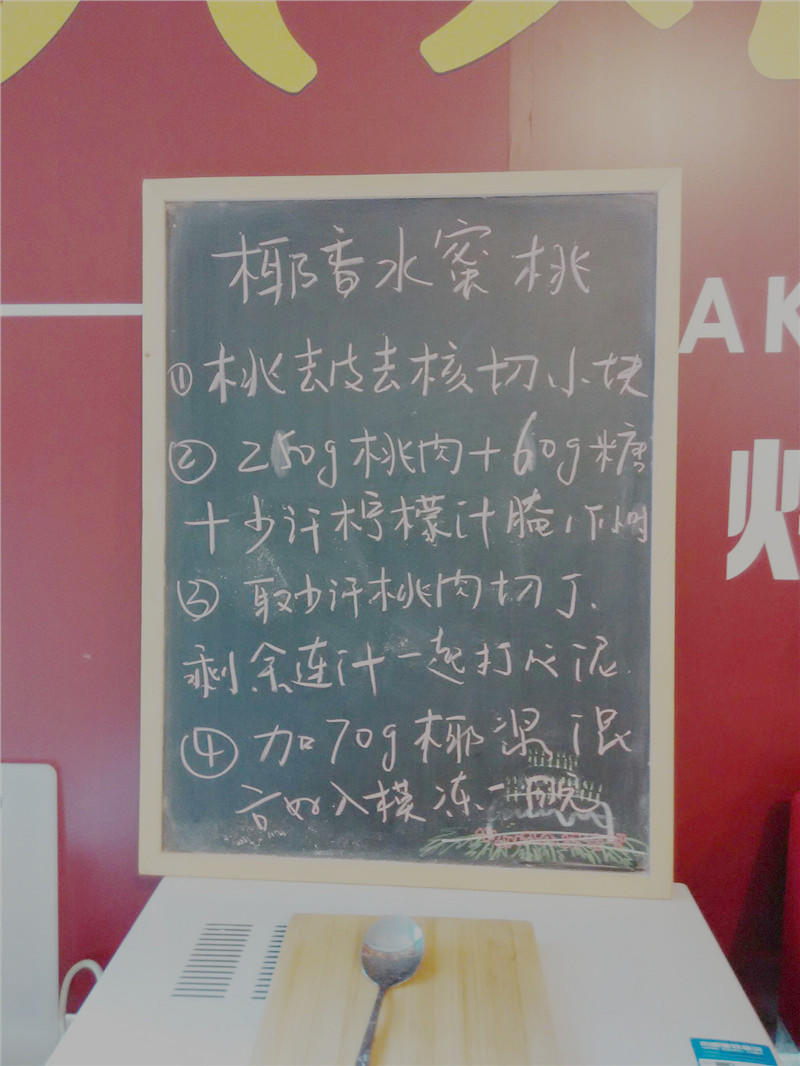 椰香水蜜桃
① 桃去皮去核切小块
② 250g桃肉+60g糖
+少许柠檬汁腌1个小时
③ 取少许桃肉切丁.
剩余连汁一起打成泥.
④ 加70g椰浆混
合好入模冻一晚
AK